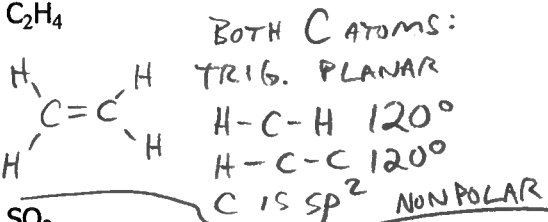 C₂H₄
BOTH C ATOMS:
TRIG. PLANAR
H H
C=C
H H
H-C-H 120°
H-C-C 120°
C IS SP² NONPOLAR